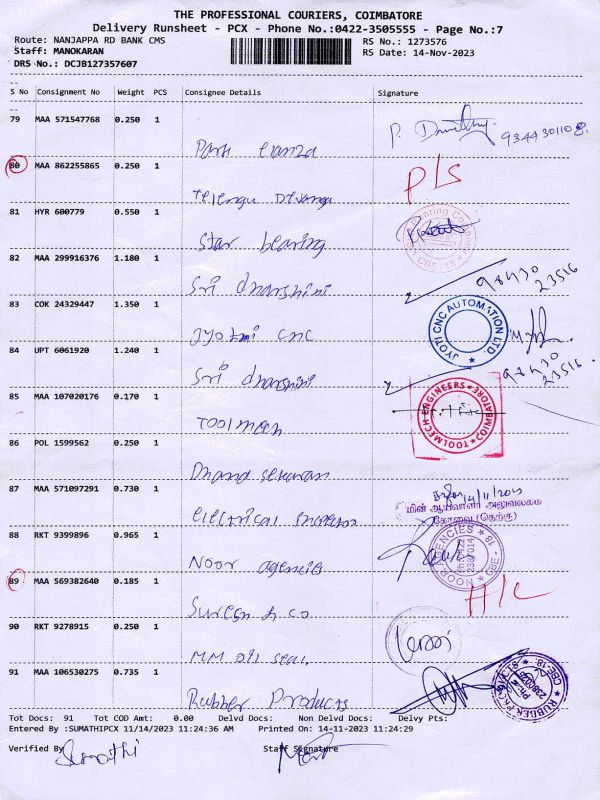 THE PROFESSIONAL COURIERS, COIMBATORE
Delivery Runsheet - PCX - Phone No.:0422-3505555 - Page No.:7
Route: NANJAPPA RD BANK CMS
RS No.: 1273576
Staff: MANOKARAN
RS Date: 14-Nov-2023
DRS No.: DCJB127357607
S No Consignment No Weight PCS Consignee Details Signature
79 MAA 571547768 0.250 1
9344301108
Park
80 MAA 862255865 0.250 1
PLS
Telengu Devanga
81 HYR 600779 0.550 1
Bearing
CBE-18
Star bearing
82 MAA 299916376 1.180 1
98430
23516
Sri dharshini
83 COK 24329447 1.350 1
JYOTI CNC AUTOMATION LTD.
Jyothi CNC
84 UPT 6061920 1.240 1
98430
23516
Sri dharshini
85 MAA 107020176 0.170 1
TOOLMECH ENGINEERS COIMBATORE
Toolmech
86 POL 1599562 0.250 1
Dhana sekaran
87 MAA 571097291 0.730 1
14/11/2023
மின் ஆய்வாளர் அலுவலகம்
கோவை (தெற்கு)
Electrical
88 RKT 9399896 0.965 1
NOOR AGENCIES
CBE - 18
Noor agencies
89 MAA 569382640 0.185 1
H/C
Suresh & co
90 RKT 9278915 0.250 1
MM oil seal
91 MAA 106530275 0.735 1
RUBBER PRODUCTS CBE-18
Rubber Products
Tot Docs: 91 Tot COD Amt: 0.00 Delvd Docs: Non Delvd Docs: Delvy Pts:
Entered By :SUMATHIPCX 11/14/2023 11:24:36 AM Printed On: 14-11-2023 11:24:29
Verified By Staff Signature
Sumathi